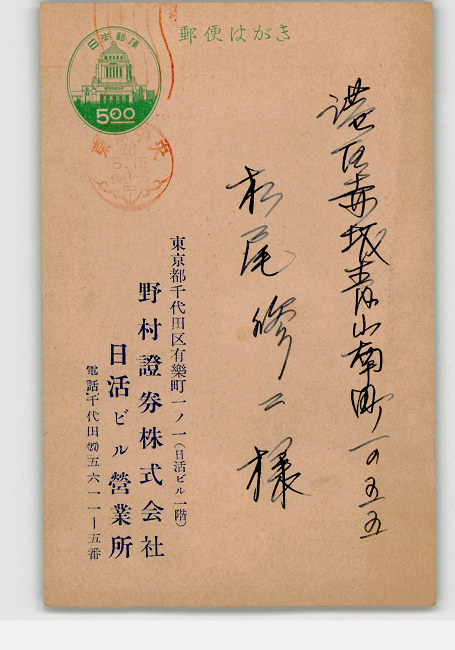 郵便はがき
日本郵便
5.00
港区赤坂青山南町一の五五
松尾修二様
東京都千代田区有樂町一ノ一(日活ビル一階)
野村證券株式会社
日活ビル營業所
電話千代田(27)五六一一―五番